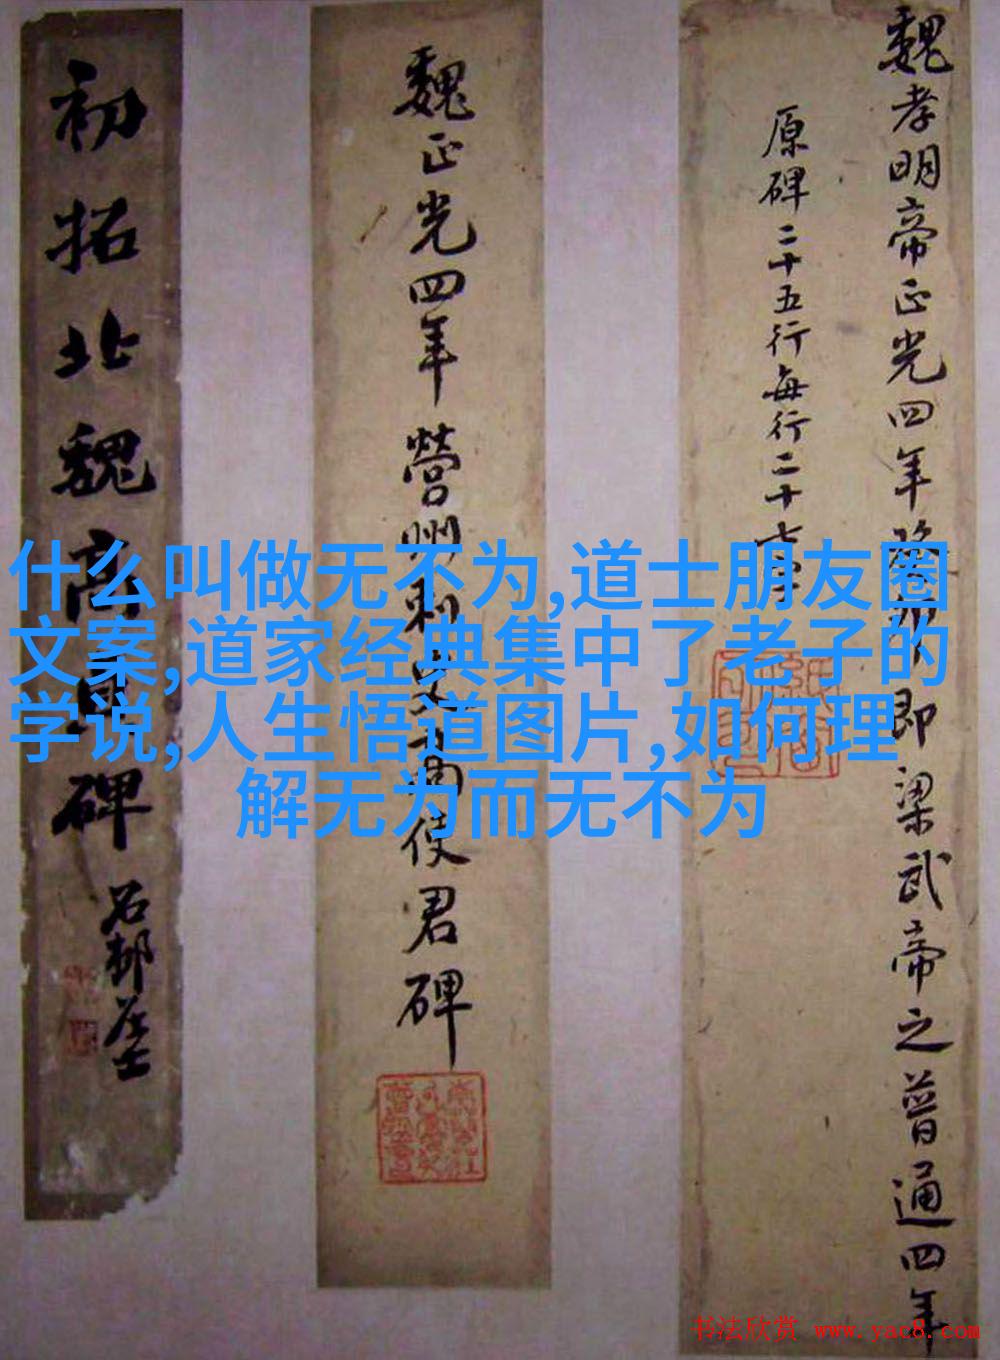 魏孝明帝正光四年癸卯即梁武帝之普通四年
原碑二十五行每行二十七字
魏正光四年營州刺史高使君碑
初拓北魏高貞碑
石邨居士
什么叫做无不为,道士朋友圈
文案,道家经典集中了老子的
学说,人生悟道图片,如何理
解无为而无不为
书法欣赏 www.yac8.com